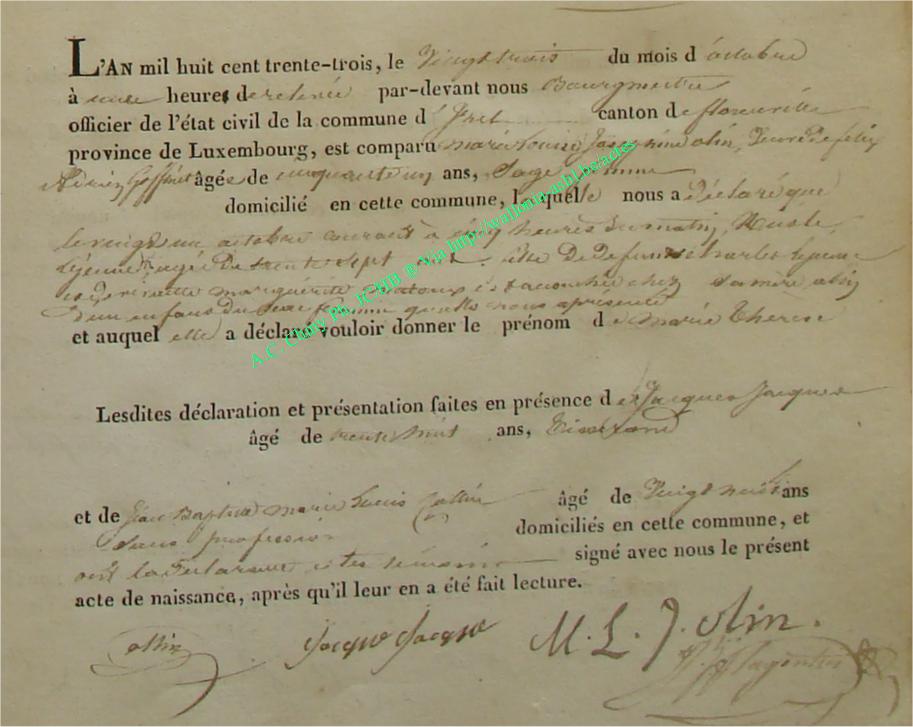 L'AN mil huit cent trente-trois, le Vingt trois du mois d'octobre
à onze heures de relevée par-devant nous Bourgmestre
officier de l'état civil de la commune d' canton de florenville
province de Luxembourg, est comparu marie Louise olin, Veuve de felix
âgée de cinquante un ans, Sage femme
domicilié en cette commune, laquelle nous a Déclaré que
le vingt un octobre courant à cinq heures du matin,
Lejeune, agée De trente Sept ans, fille De Defunt charles Lejeune
et de marguerite est accouchée chez sa mère
D'un enfant du Sexe feminin qu'elle nous a présenté
et auquel elle a déclaré vouloir donner le prénom de marie Therese
Lesdites déclaration et présentation faites en présence de Jacques Jacques
âgé de trente huit ans, Tisserand
et de Jean Baptiste marie Louis âgé de Vingt huit ans
Sans profession domiciliés en cette commune, et
ont la Declarante et les témoins signé avec nous le présent
acte de naissance, après qu'il leur en a été fait lecture.
Jacque Jacque M. L. J. olin.
A.C. Chiny Ph. JC HB @ via http://wallonia.asbl.be/actes